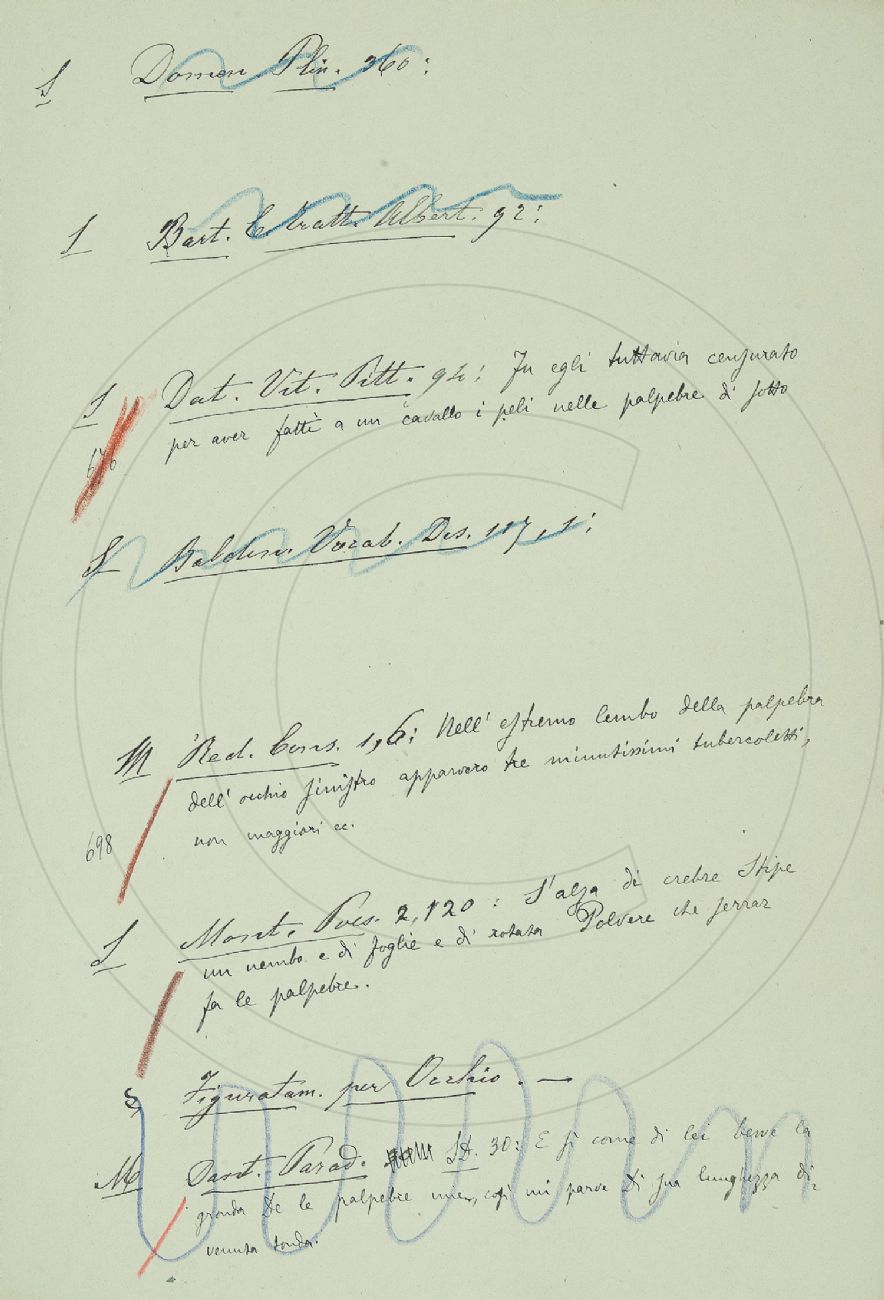 S Domen. Plin. 360:
S Bart. C. Tratt. Albert. 92:
S Dat. Vit. Pitt. 94: Fu egli tuttavia censurato
per aver fatti a un cavallo i peli nelle palpebre di sotto
676
S Baldin. Vocab. Dis. 117, 1:
M Red. Cons. 1, 6: Nell' estremo lembo della palpebra
dell' occhio sinistro apparvero tre minutissimi tubercoletti,
non maggiori ec.
698
S Mont. Poes. 2, 120: S'alza di crebre Stipe
un nembo e di foglie e di rotata Polvere che serrar
fa le palpebre.
§ Figuratam. per Occhio. —
M Dant. Parad. 30: E sì come di lei bevve la
gronda De le palpebre mie, così mi parve Di sua lunghezza di-
venuta tonda.